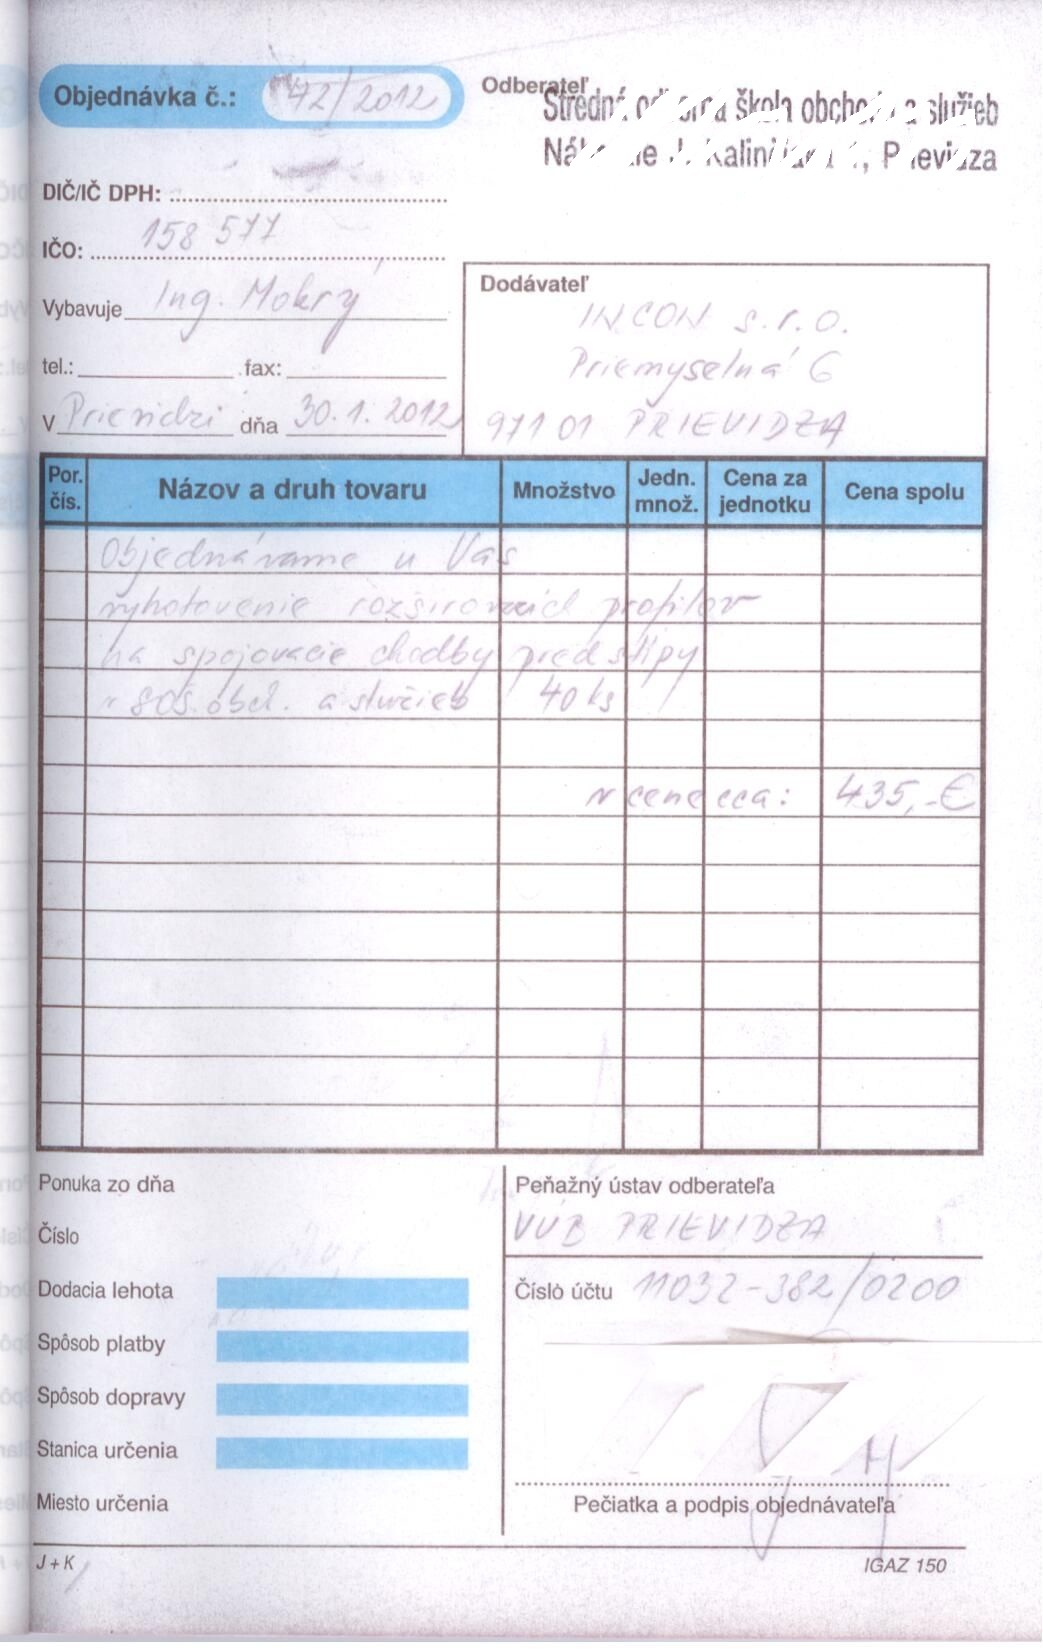 Objednávka č.: 42/2012
Odberateľ
Stredná odborná škola obchodu a služieb
Nábrežie J. Kalinčiaka 1, Prievidza
DIČ/IČ DPH:
IČO: 158 577
Vybavuje Ing. Mokrý
tel.: fax:
V Prievidzi dňa 30.1.2012
Dodávateľ
INCON s.r.o.
Priemyselná 6
971 01 PRIEVIDZA
Por. čís. Názov a druh tovaru Množstvo Jedn. množ. Cena za jednotku Cena spolu
Objednávame u Vás
vyhotovenie rozširovacích profilov
na spojovacie chodby pred stĺpy
v SOŠ obch. a služieb 40 ks
v cene cca: 435,-€
Ponuka zo dňa
Číslo
Dodacia lehota
Spôsob platby
Spôsob dopravy
Stanica určenia
Miesto určenia
Peňažný ústav odberateľa
VÚB PRIEVIDZA
Číslo účtu 11032-382/0200
Pečiatka a podpis objednávateľa
J + K
IGAZ 150